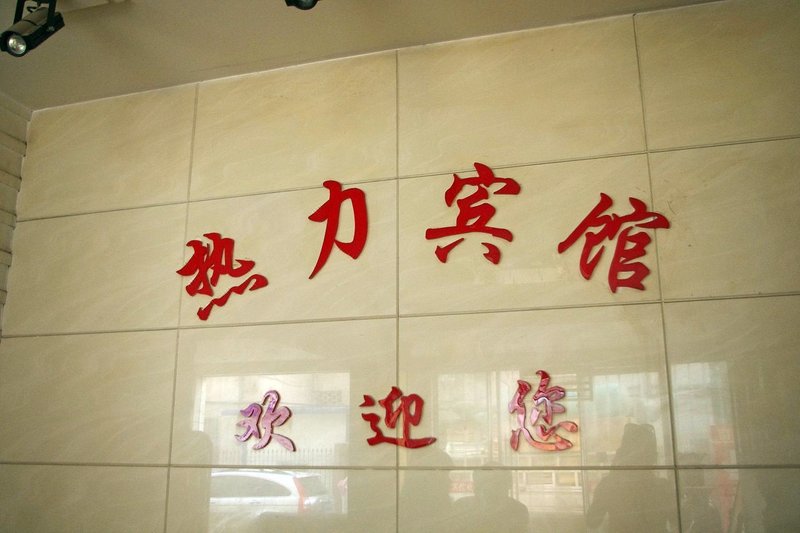 热力宾馆
欢迎您